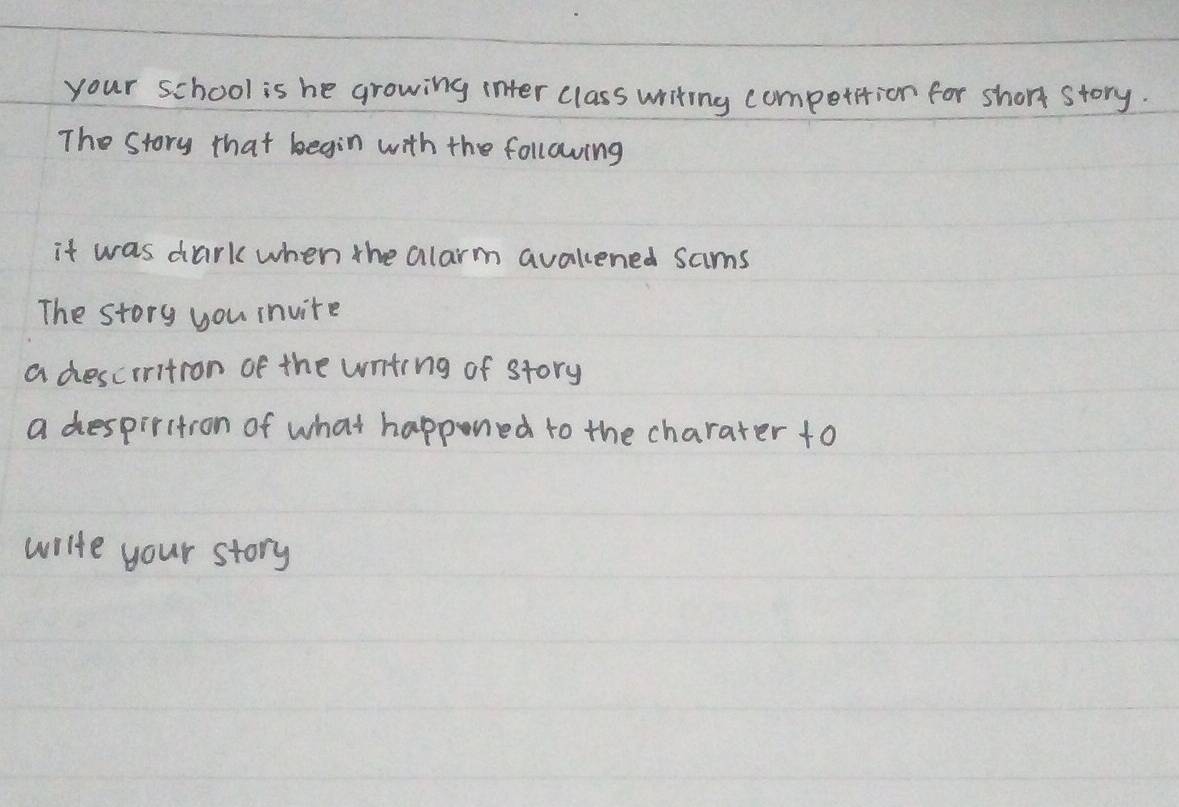 your school is he growing inter class writing competition for short story.
The story that begin with the following
it was dark when the alarm avakened sams
The story you invite
a descrrition of the writing of story
a despirition of what happened to the charater to
write your story